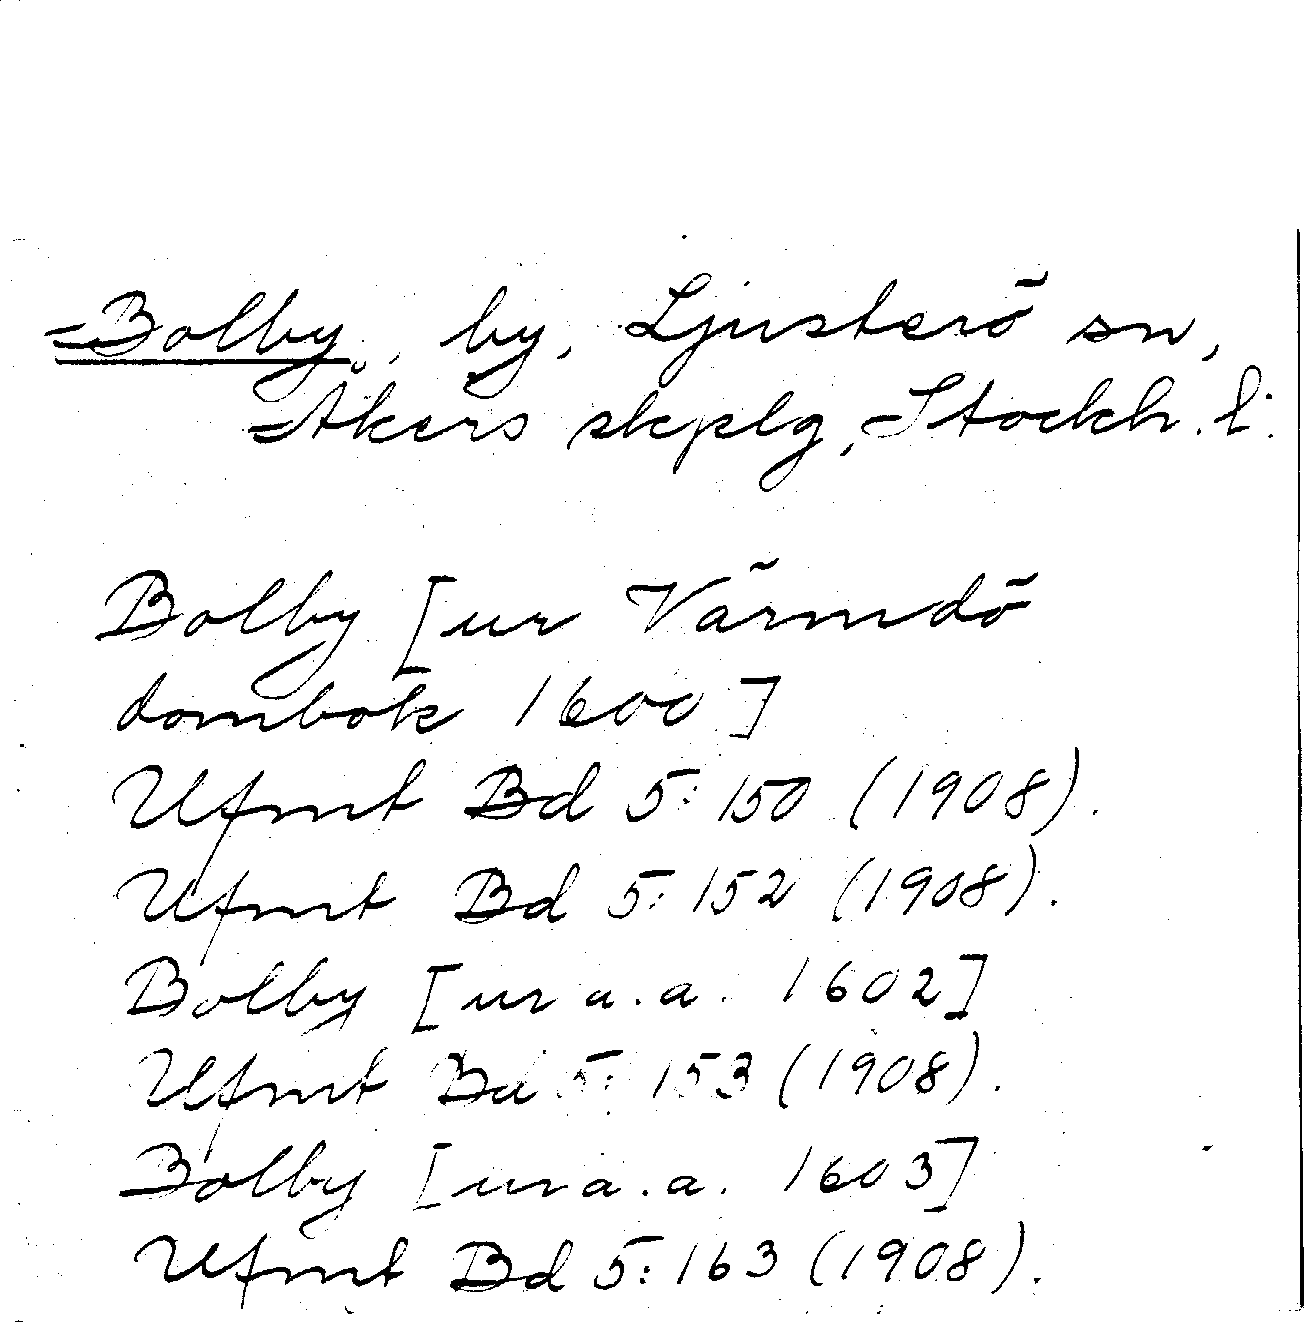 Bolby, by, Ljusterö sn,
Åkers skplg, Stockh. l.
Bolby [ur Värmdö
dombok 1600]
Ufmt Bd 5:150 (1908).
Ufmt Bd 5:152 (1908).
Bolby [ur a.a. 1602]
Ufmt Bd 5:153 (1908).
Bolby [ur a.a. 1603]
Ufmt Bd 5:163 (1908).